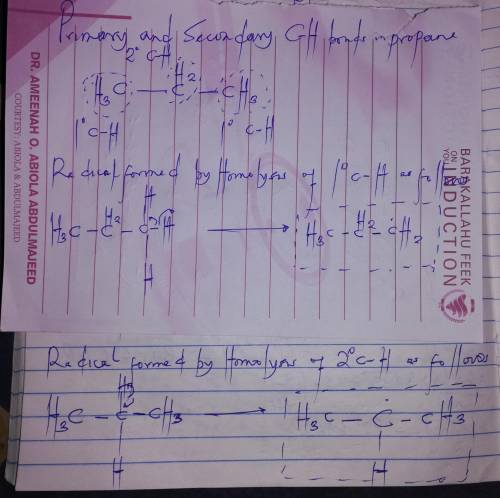 Primary and Secondary CH bonds in propane
2° CH
H3C — CH2 — CH3
1° C-H 1° C-H
Radical formed by Homolysis of 1° C-H as follows
H
H3C — CH2 — C — H → H3C — CH2 — CH2
H
Radical formed by Homolysis of 2° C-H as follows
H
H3C — C — CH3 → H3C — C — CH3
H H
DR. AMEENAH O. ABIOLA ABDULMAJEED
COURTESY: ABIOLA & ABDULMAJEED
BARAKALLAHU FEEK
ON
YOUR
INDUCTION